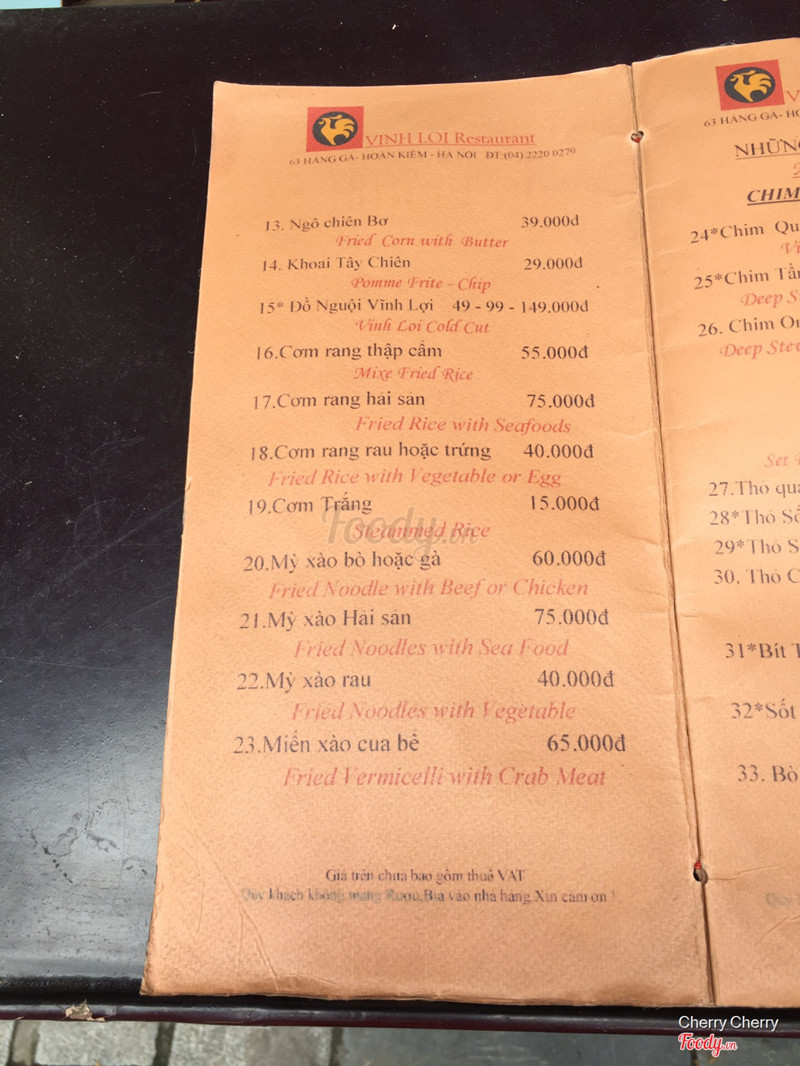 VINH LOI Restaurant
63 HÀNG GÀ- HOÀN KIẾM - HÀ NỘI ĐT:(04) 2220 0279
13. Ngô chiên Bơ 39.000đ
Fried Corn with Butter
14. Khoai Tây Chiên 29.000đ
Pomme Frite - Chip
15* Đồ Nguội Vĩnh Lợi 49 - 99 - 149.000đ
Vinh Loi Cold Cut
16.Cơm rang thập cẩm 55.000đ
Mixe Fried Rice
17.Cơm rang hải sản 75.000đ
Fried Rice with Seafoods
18.Cơm rang rau hoặc trứng 40.000đ
Fried Rice with Vegetable or Egg
19.Cơm Trắng 15.000đ
Steammed Rice
20.Mỳ xào bò hoặc gà 60.000đ
Fried Noodle with Beef or Chicken
21.Mỳ xào Hải sản 75.000đ
Fried Noodles with Sea Food
22.Mỳ xào rau 40.000đ
Fried Noodles with Vegetable
23.Miến xào cua bể 65.000đ
Fried Vermicelli with Crab Meat
Giá trên chưa bao gồm thuế VAT
Qúy khách không mang Rượu,Bia vào nhà hàng.Xin cảm ơn !
63 HÀNG GÀ- HO
NHỮNG
CHIM
24*Chim Qu
25*Chim Tầ
Deep S
26. Chim
Deep Stew
Set
27.Thỏ qua
28*Thỏ Số
29*Thỏ S
30. Thỏ C
31*Bít T
32*Sốt
33. Bò
Foody.vn
Cherry Cherry
Foody.vn